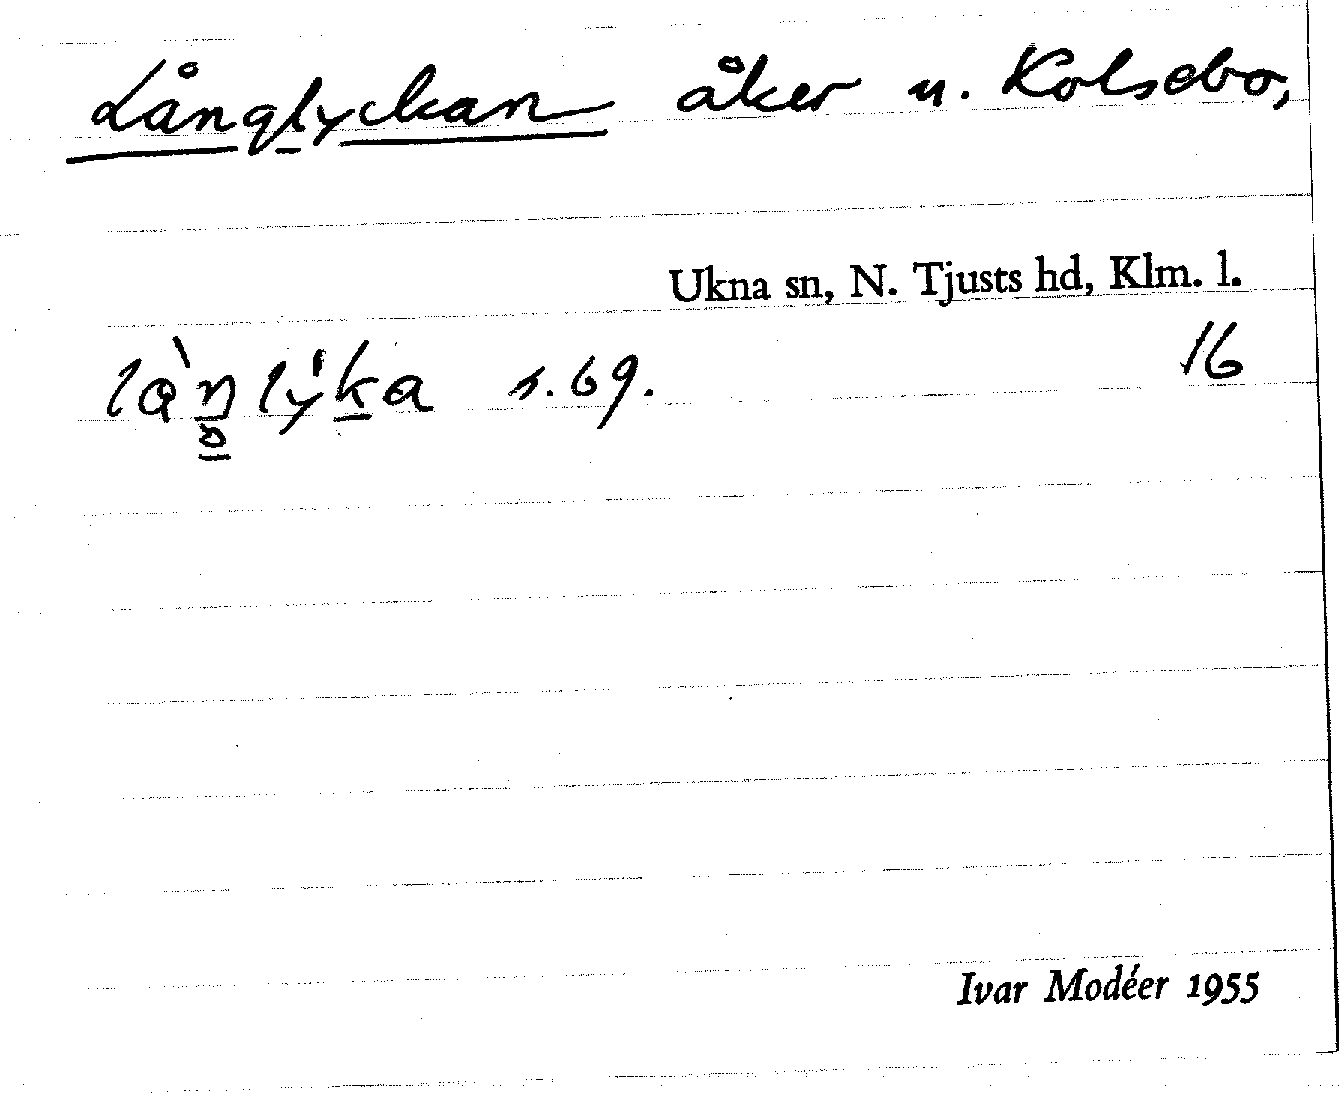 Långlyckan åker u. Kolsebo,
Ukna sn, N. Tjusts hd, Klm. l.
s. 69. 16
Ivar Modéer 1955